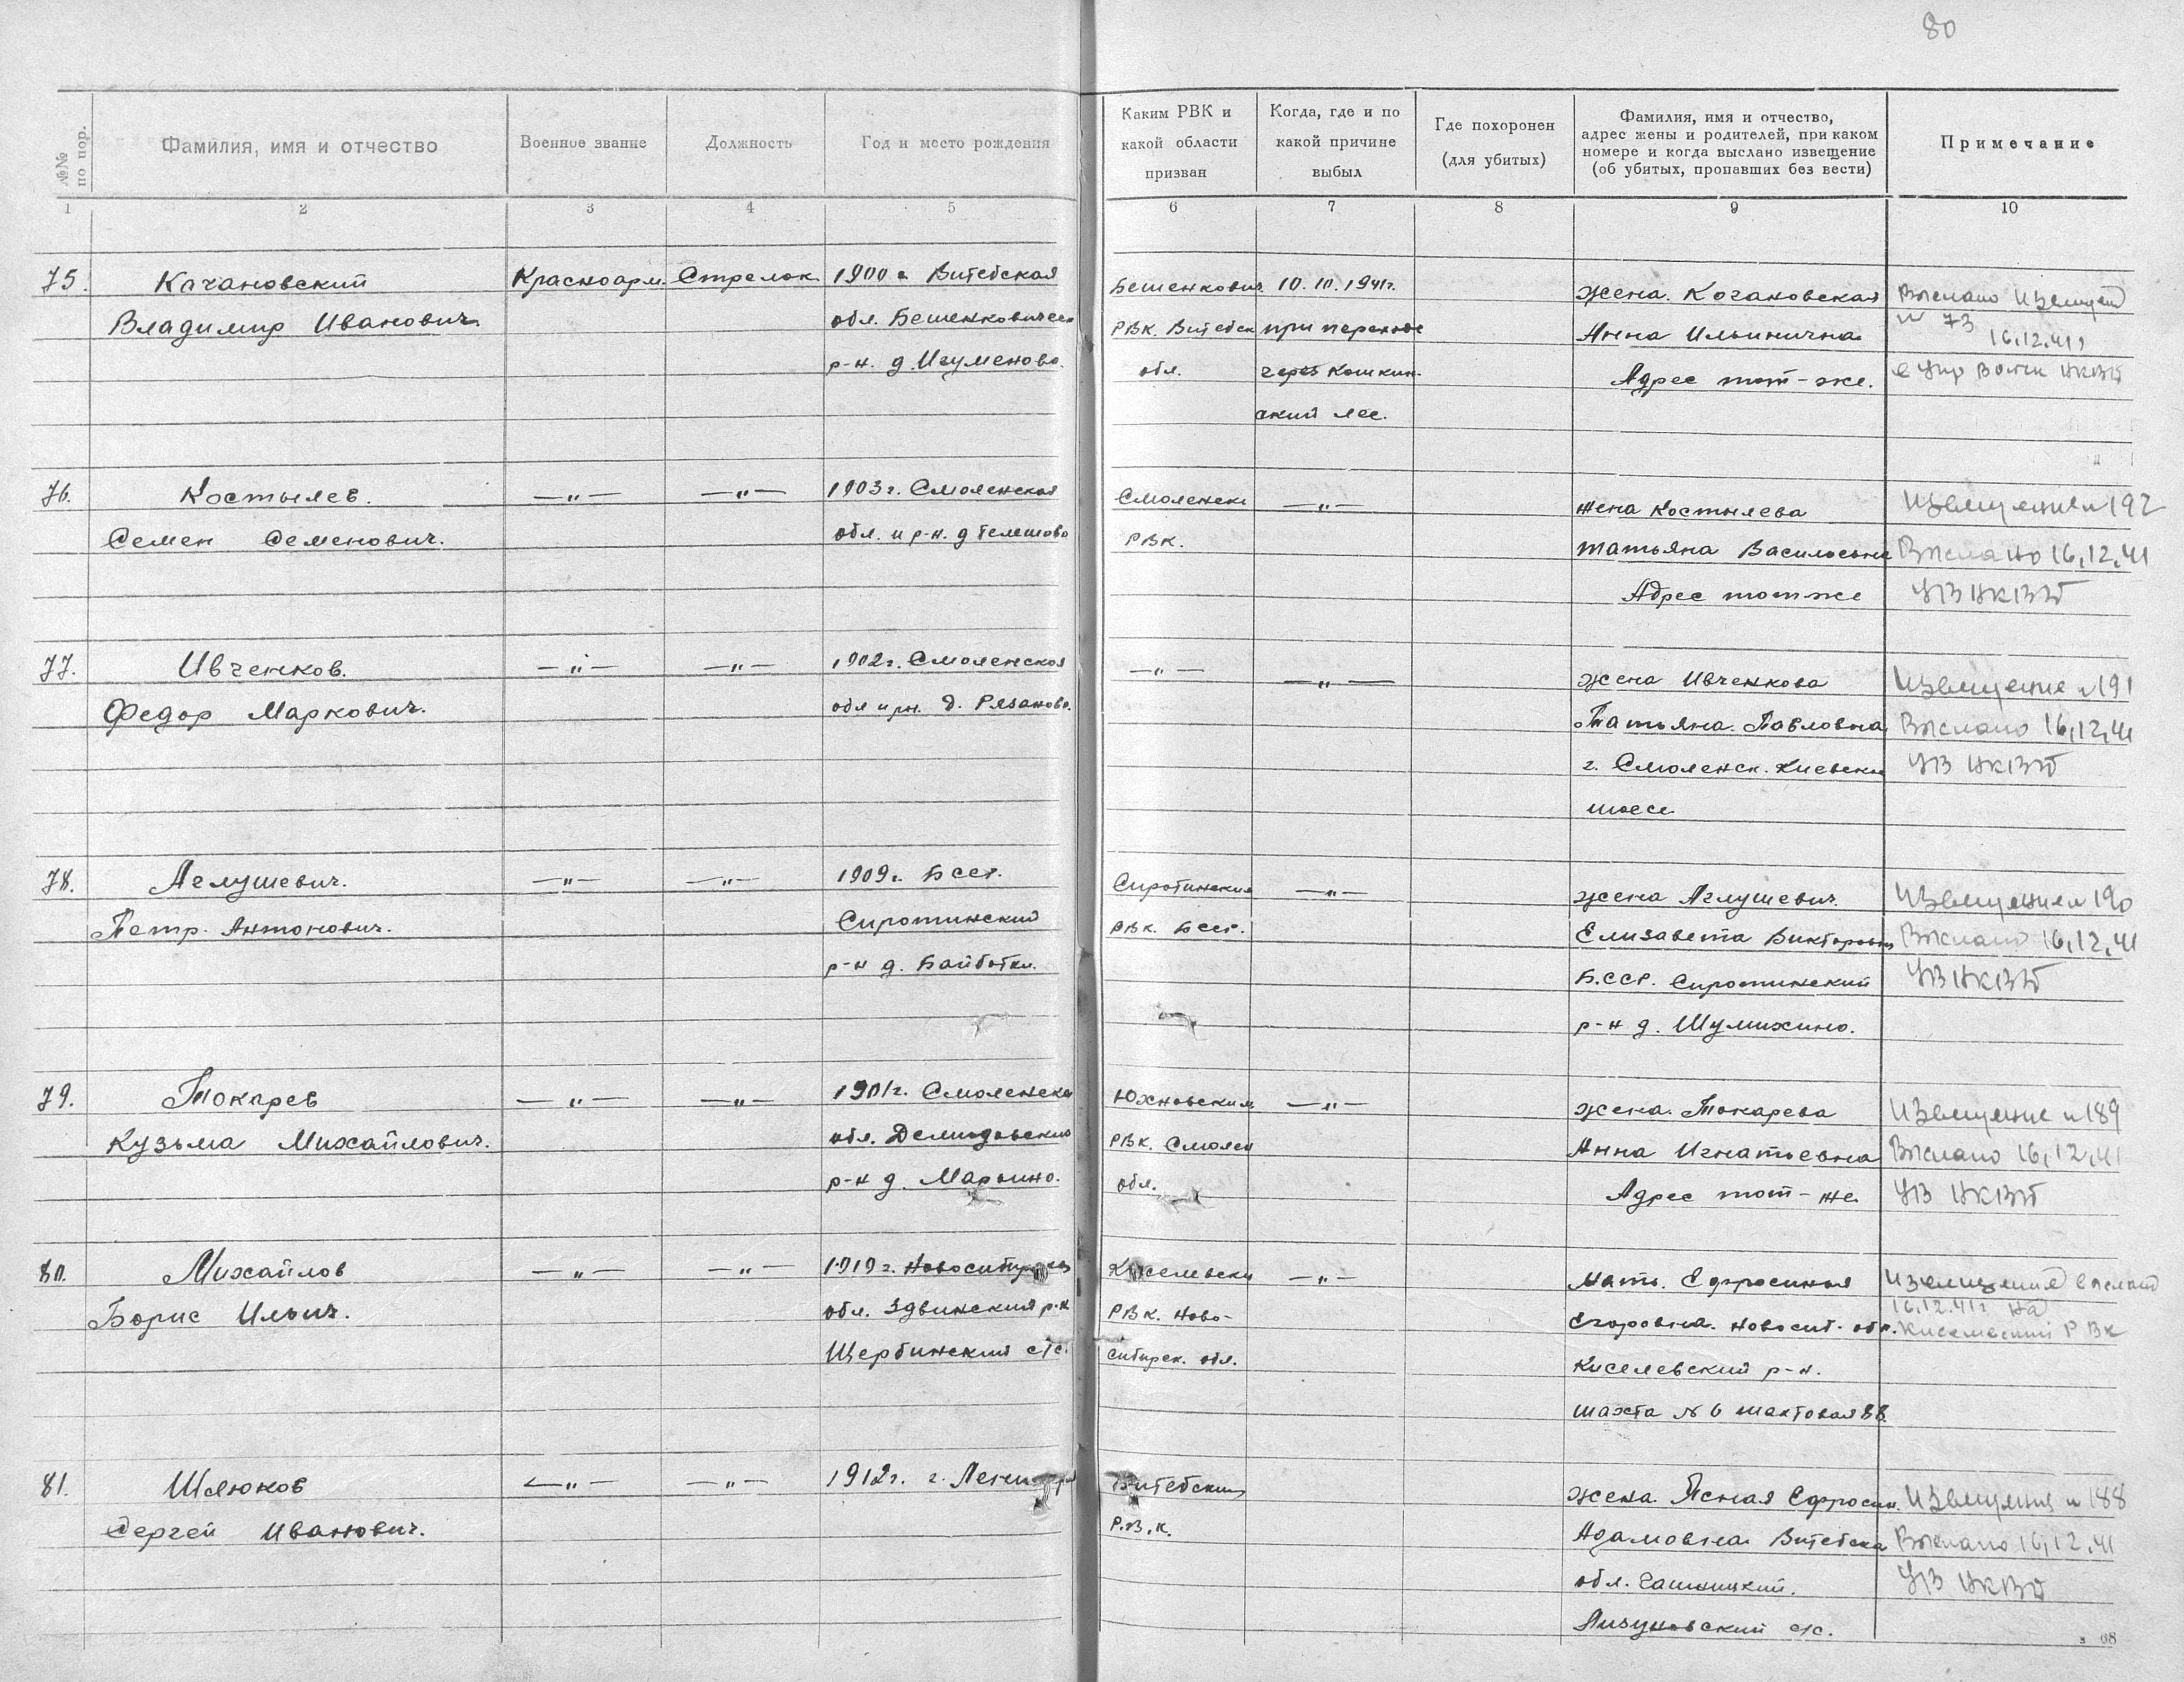 80
№№ по пор.
Фамилия, имя и отчество
Военное звание
Должность
Год и место рождения
Каким РВК и
какой области
призван
Когда, где и по
какой причине
выбыл
Где похоронен
(для убитых)
Фамилия, имя и отчество,
адрес жены и родителей, при каком
номере и когда выслано извещение
(об убитых, пропавших без вести)
Примечание
1 2 3 4 5 6 7 8 9 10
75. Качановский Красноарм. Стрелок 1900 г Витебская
Владимир Иванович. обл. Бешенковическ
р-н. д. Игуменово.
Бешенкович.
РВК. Витебск
обл.
10.10.1941г.
при переходе
через Кошкин-
ский лес.
жена. Кочановская
Анна Ильинична
Адрес тот-же.
Выслано
№ 73
16.12.41
76. Костылев. —"— —"— 1903 г. Смоленская
Семен Семенович. обл. и р-н. д Телешово
Смоленск
РВК.
—"—
жена Костылева
Татьяна Васильевна
Адрес тот же
Извещение № 192
Выслано 16.12.41
УВ НКВД
77. Ивченков. —"— —"— 1902 г. Смоленская
Федор Маркович. обл и рн. д. Рязаново.
—"— —"—
жена Ивченкова
Татьяна. Павловна
г. Смоленск. Киевское
шоссе
Извещение № 191
Выслано 16.12.41
УВ НКВД
78. Аглушевич. —"— —"— 1909 г. БССР.
Петр. Антонович. Сиротинский
р-н д.
Сиротинским
РВК. БССР.
—"—
жена Аглушевич.
Елизавета Викторовна
Б.ССР. Сиротинский
р-н д. Шумихино.
Извещение № 190
Выслано 16.12.41
УВ НКВД
79. Токарев —"— —"— 1901 г. Смоленская
Кузьма Михайлович. обл. Демидовский
р-н д. Марьино.
Юхновским
РВК. Смолен
обл.
—"—
жена. Токарева
Анна Игнатьевна
Адрес тот-же
Извещение № 189
Выслано 16.12.41
УВ НКВД
80. Михайлов —"— —"— 1919 г.
Борис Ильич. обл. Здвинский р-н
Щербинский с/с.
Киселевски
РВК. Ново-
сибирск. обл.
—"—
Мать. Ефросинья
Егоровна. Новосиб. обл.
Киселевский р-н.
шахта № 6 шахтовая 88.
Извещение выслано
16.12.41г на
Киселевский РВК
81. Шлюков —"— —"— 1912 г. г.
Сергей Иванович.
Витебским
Р.В.К.
жена Ясная Ефросин.
Адамовна Витебска
обл. Чашницкий.
с/с.
Извещение № 188
Выслано 16.12.41
УВ НКВД
68